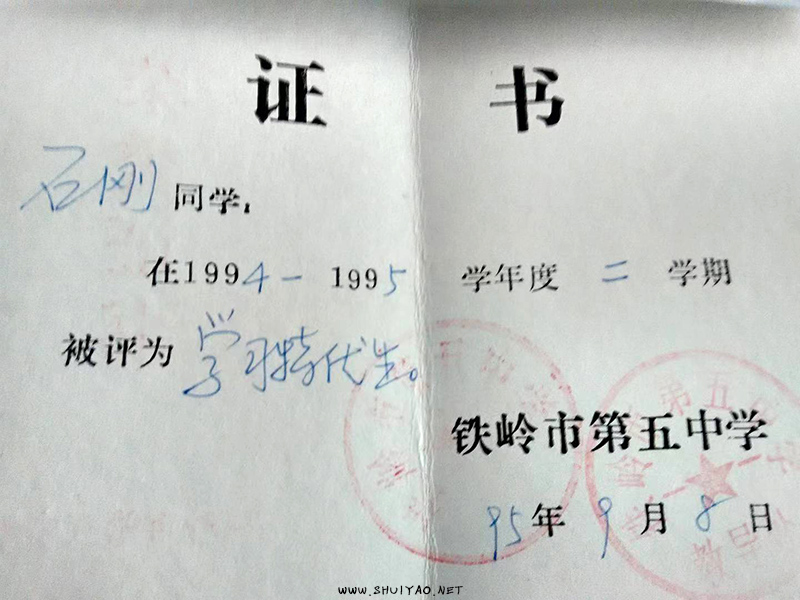 证 书
石刚 同学：
在1994－1995 学年度 二 学期
被评为 学习特优生。
铁岭市第五中学
95年 9 月 8 日
WWW.SHUIYAO.NET